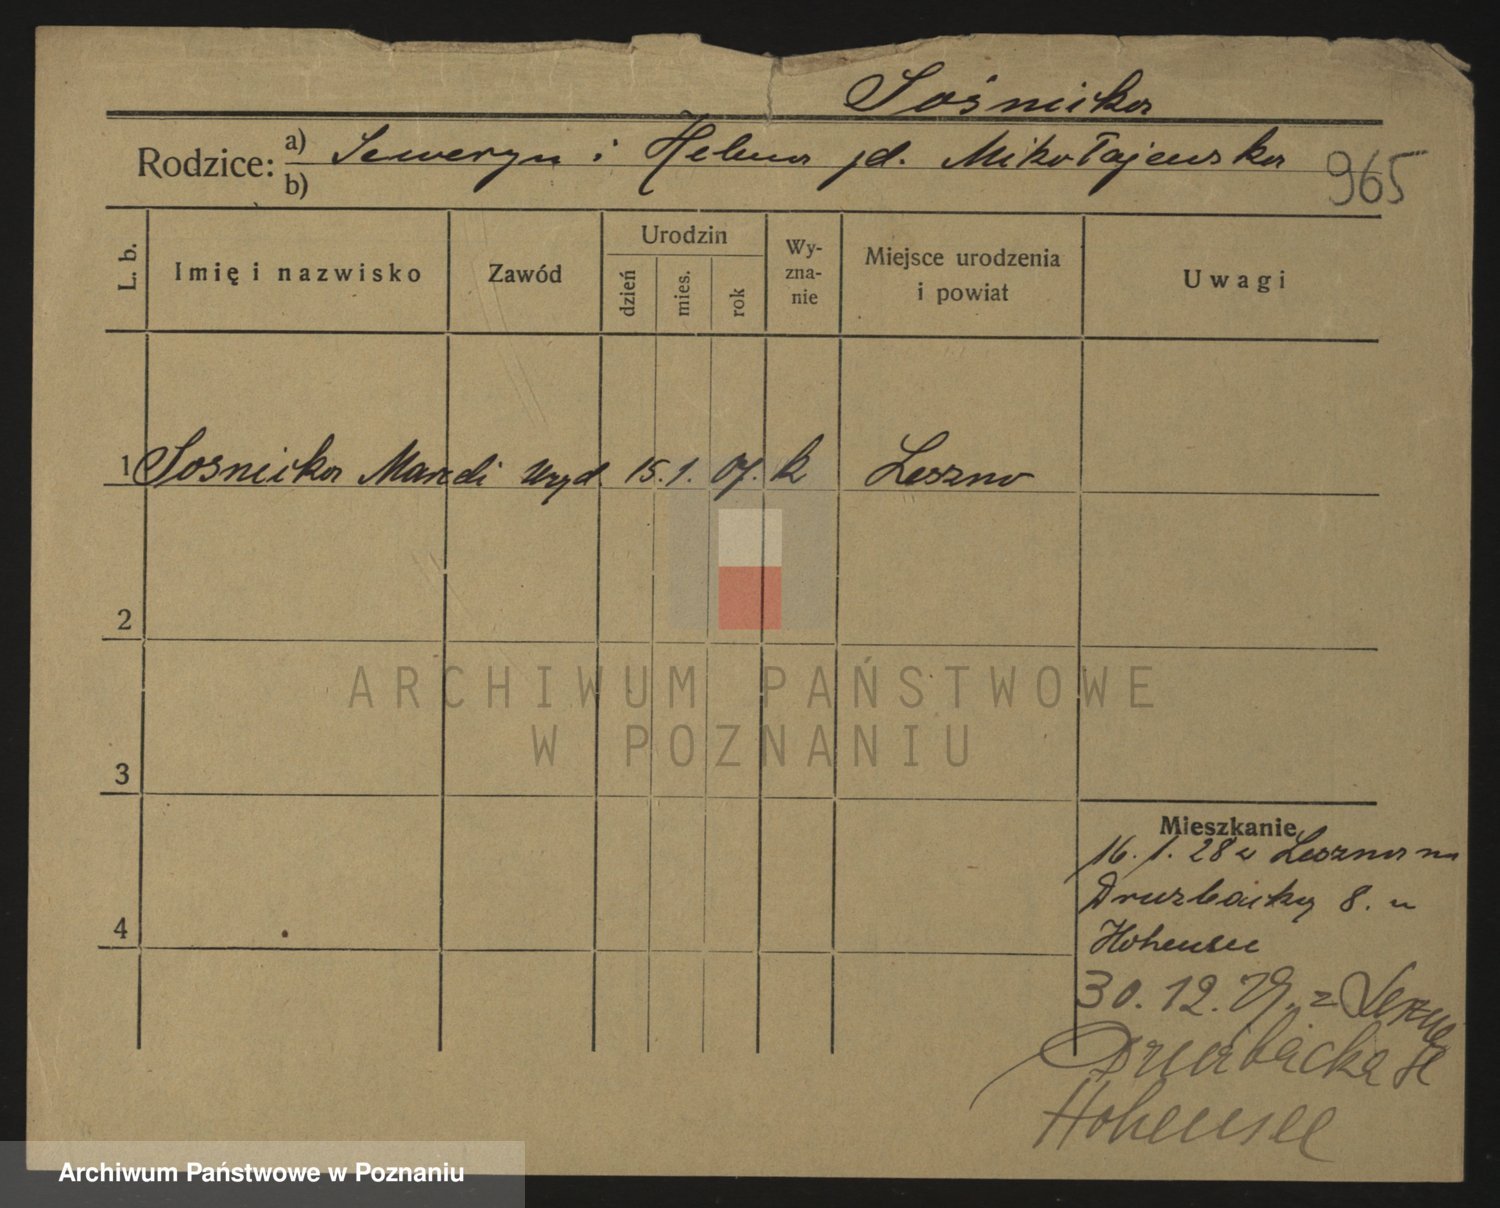 Sośnicka
Rodzice: a) Seweryn i Helena zd. Mikołajewska
b)
965
L. b.
Imię i nazwisko
Zawód
Urodzin
dzień
mies.
rok
Wy-
zna-
nie
Miejsce urodzenia
i powiat
Uwagi
1 Sośnicka urzd. 15. 1. 07. k Leszno
2
3
4
Mieszkanie
16. 1. 28 Leszna
Drużbacky 8. u
Hohensee
30. 12. 29. z Leszna
Drużbacka
Hohensee
ARCHIWUM PAŃSTWOWE
W POZNANIU
Archiwum Państwowe w Poznaniu